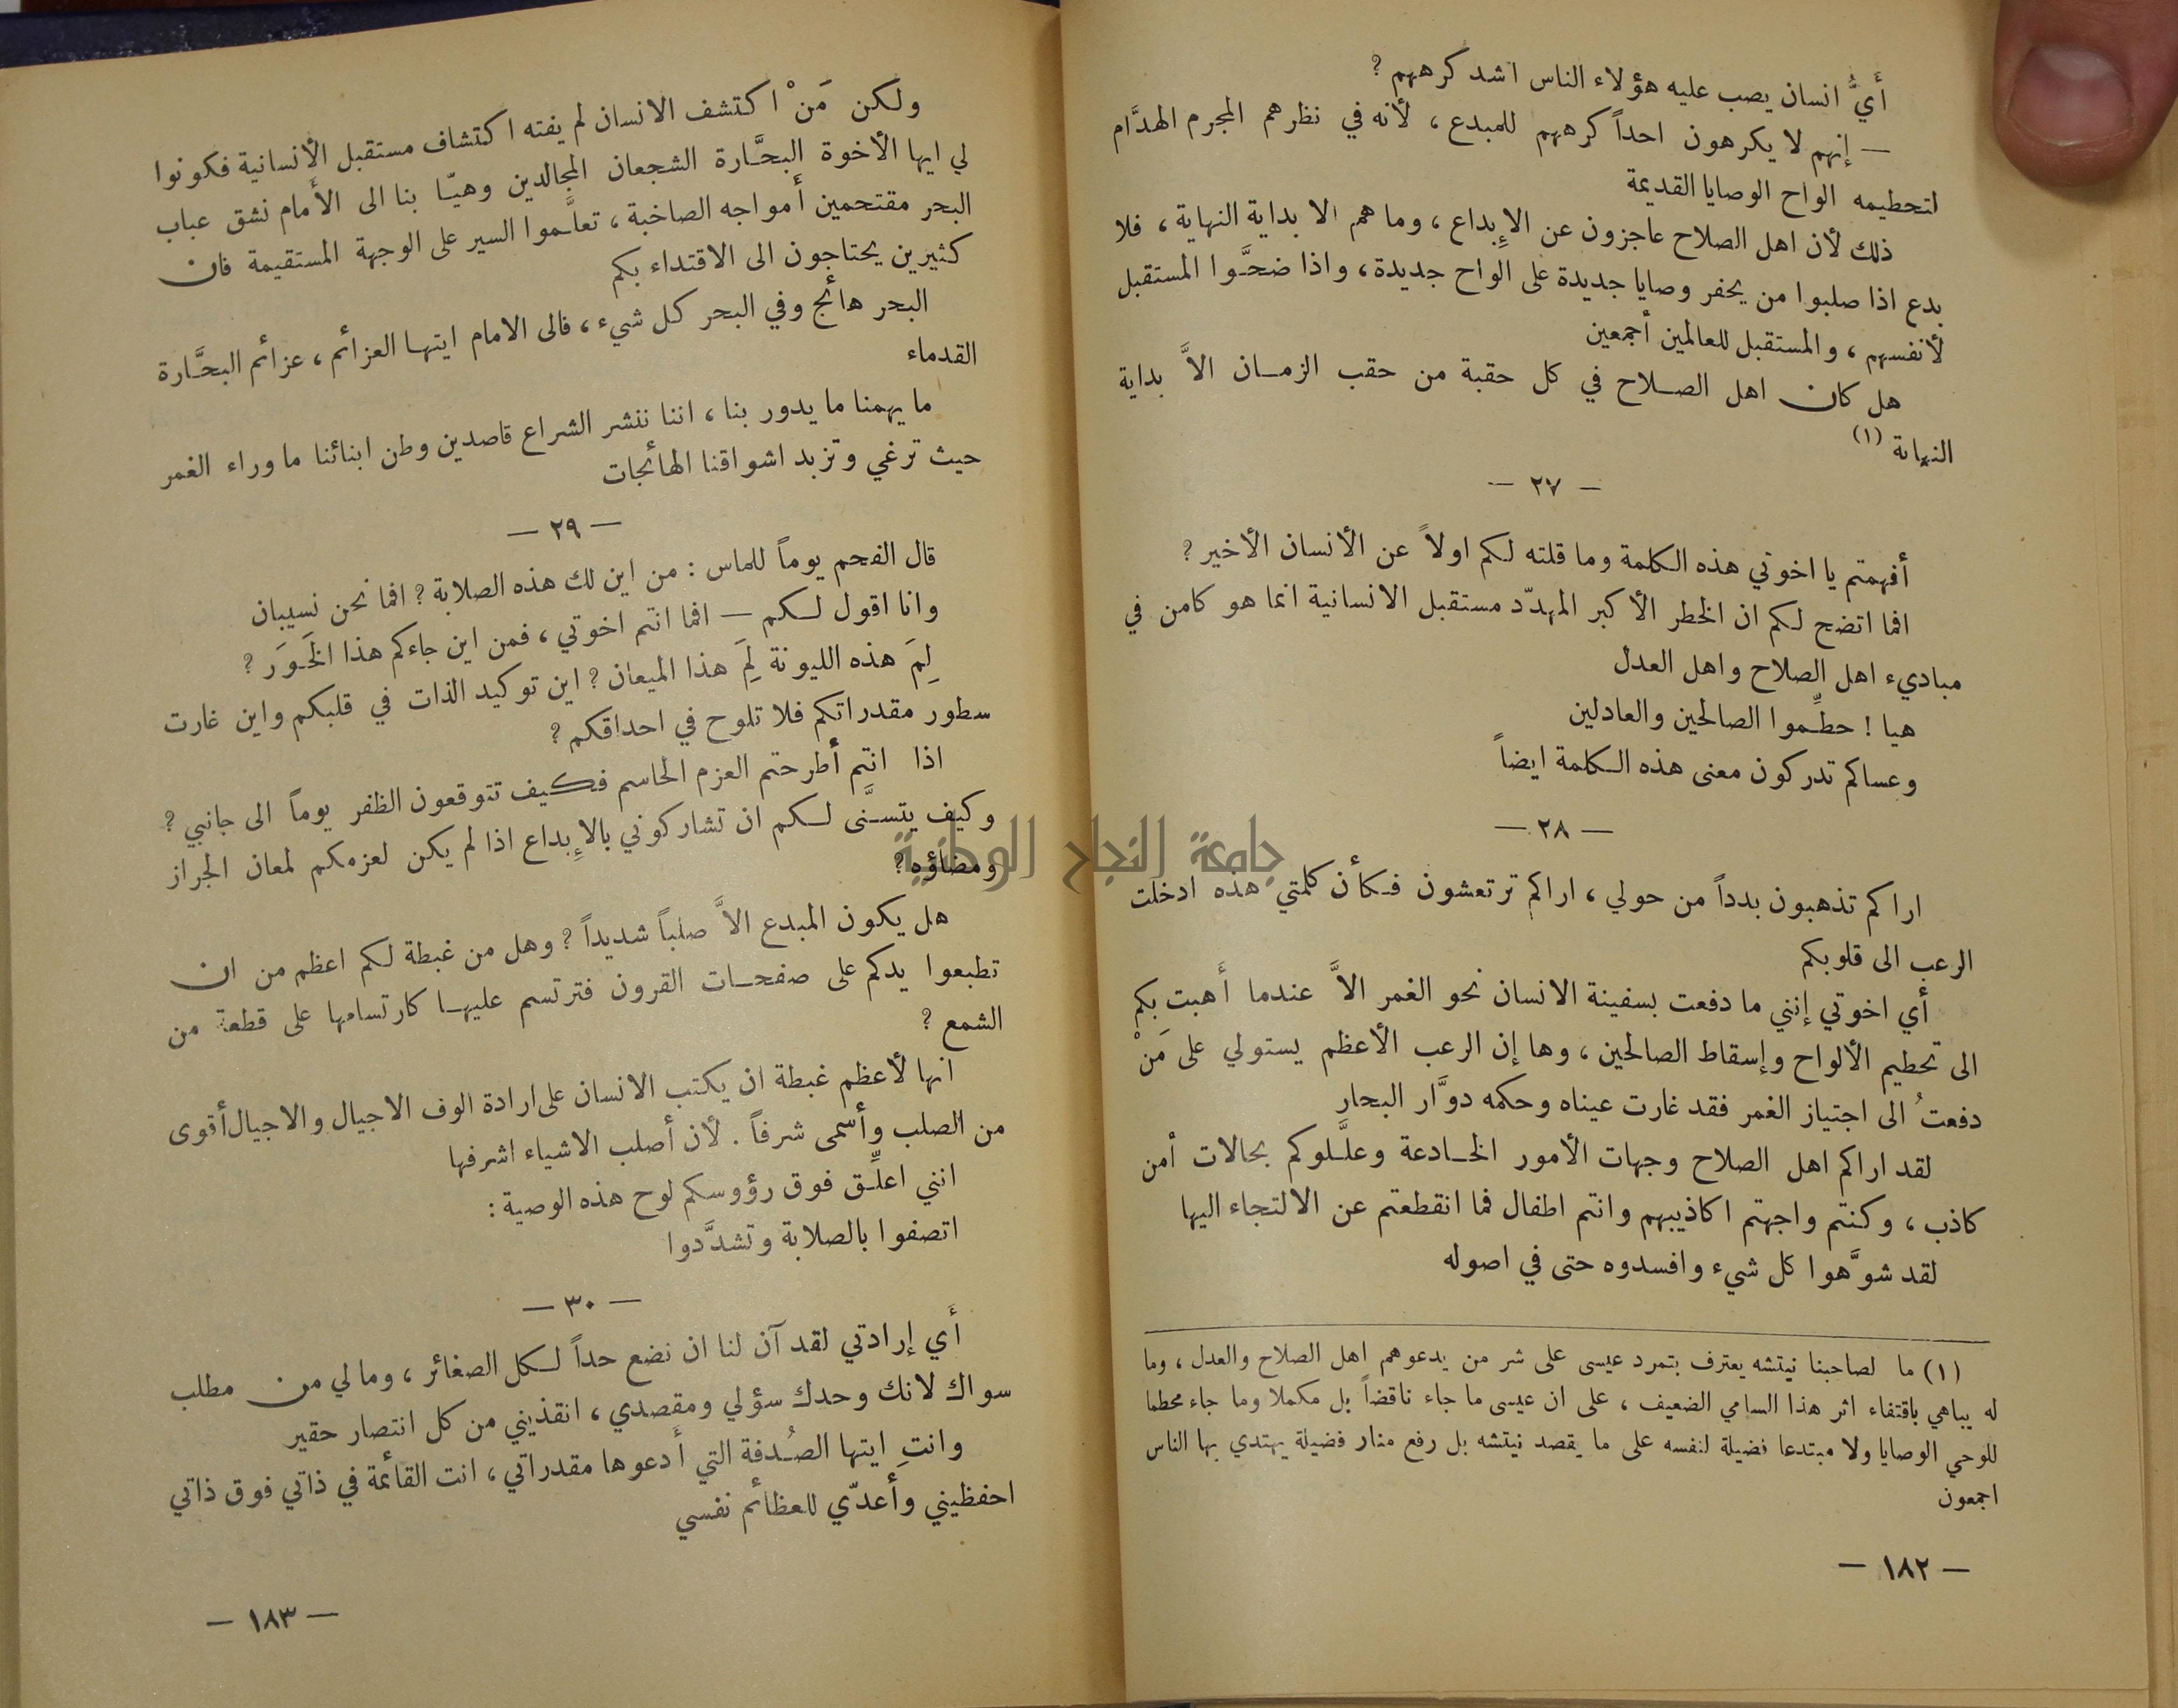 أَيُّ انسان يصب عليه هؤلاء الناس اشد كرههم ?
— إنهم لا يكرهون احداً كرههم للمبدع ، لأنه في نظرهم المجرم الهدَّام
لتحطيمه الواح الوصايا القديمة
ذلك لأن اهل الصلاح عاجزون عن الإِبداع ، وما هم الا بداية النهاية ، فلا
بدع اذا صلبوا من يحفر وصايا جديدة على الواح جديدة ، واذا ضحَّوا المستقبل
لأنفسهم ، والمستقبل للعالمين أجمعين
هل كان اهل الصلاح في كل حقبة من حقب الزمان الاَّ بداية
النهاية (١)
— ٢٧ —
أفهمتم يا اخوتي هذه الكلمة وما قلته لكم اولاً عن الأنسان الأخير ?
افما اتضح لكم ان الخطر الأكبر المهدّد مستقبل الانسانية انما هو كامن في
مباديء اهل الصلاح واهل العدل
هيا ! حطِّموا الصالحين والعادلين
وعساكم تدركون معنى هذه الكلمة ايضاً
— ٢٨ —
اراكم تذهبون بدداً من حولي ، اراكم ترتعشون فكأن كلمتي هذه ادخلت
الرعب الى قلوبكم
أي اخوتي إنني ما دفعت بسفينة الانسان نحو الغمر الاَّ عندما أَهبت بكم
الى تحطيم الألواح وإسقاط الصالحين ، وها إن الرعب الأعظم يستولي على مَنْ
دفعتُ الى اجتياز الغمر فقد غارت عيناه وحكمه دوَّار البحار
لقد اراكم اهل الصلاح وجهات الأمور الخادعة وعلَّلوكم بحالات أمن
كاذب ، وكنتم واجهتم اكاذيبهم وانتم اطفال فما انقطعتم عن الالتجاء اليها
لقد شوَّهوا كل شيء وافسدوه حتى في اصوله
(١) ما لصاحبنا نيتشه يعترف بتمرد عيسى على شر من يدعوهم اهل الصلاح والعدل ، وما
له يباهي باقتفاء اثر هذا السامي الضعيف ، على ان عيسى ما جاء ناقضاً بل مكملا وما جاء محطما
للوحي الوصايا ولا مبتدعا فضيلة لنفسه على ما يقصد نيتشه بل رفع منار فضيلة يهتدي بها الناس
اجمعون
— ١٨٢ —
ولكن مَنْ اكتشف الانسان لم يفته اكتشاف مستقبل الأنسانية فكونوا
لي ايها الأخوة البحَّارة الشجعان المجالدين وهيّا بنا الى الأَمام نشق عباب
البحر مقتحمين أَمواجه الصاخبة ، تعلَّموا السير على الوجهة المستقيمة فان
كثيرين يحتاجون الى الاقتداء بكم
البحر هائج وفي البحر كل شيء ، فالى الامام ايتها العزائم ، عزائم البحَّارة
القدماء
ما يهمنا ما يدور بنا ، اننا ننشر الشراع قاصدين وطن ابنائنا ما وراء الغمر
حيث ترغي وتزبد اشواقنا الهائجات
— ٢٩ —
قال الفحم يوماً للماس : من اين لك هذه الصلابة ? افما نحن نسيبان
وانا اقول لكم — افما انتم اخوتي ، فمن اين جاءكم هذا الخَوَر ?
لِمَ هذه الليونة لِمَ هذا الميعان ? اين توكيد الذات في قلبكم واين غارت
سطور مقدراتكم فلا تلوح في احداقكم ?
اذا انتم أطرحتم العزم الحاسم فكيف تتوقعون الظفر يوماً الى جانبي ?
وكيف يتسنَّى لكم ان تشاركوني بالإِبداع اذا لم يكن لعزمكم لمعان الجراز
ومضاؤه ?
هل يكون المبدع الاَّ صلباً شديداً ? وهل من غبطة لكم اعظم من ان
تطبعوا يدكم على صفحات القرون فترتسم عليها كارتسامها على قطعة من
الشمع ?
انها لأعظم غبطة ان يكتب الانسان على ارادة الوف الاجيال والاجيال أقوى
من الصلب وأسمى شرفاً . لأن أصلب الاشياء اشرفها
انني اعلِّق فوق رؤوسكم لوح هذه الوصية :
اتصفوا بالصلابة وتشدَّدوا
— ٣٠ —
أَي إرادتي لقد آن لنا ان نضع حداً لكل الصغائر ، وما لي من مطلب
سواك لانك وحدك سؤلي ومقصدي ، انقذيني من كل انتصار حقير
وانتِ ايتها الصُدفة التي أَدعوها مقدراتي ، انت القائمة في ذاتي فوق ذاتي
احفظيني وأعدّي للعظائم نفسي
— ١٨٣ —
جامعة النجاح الوطنية